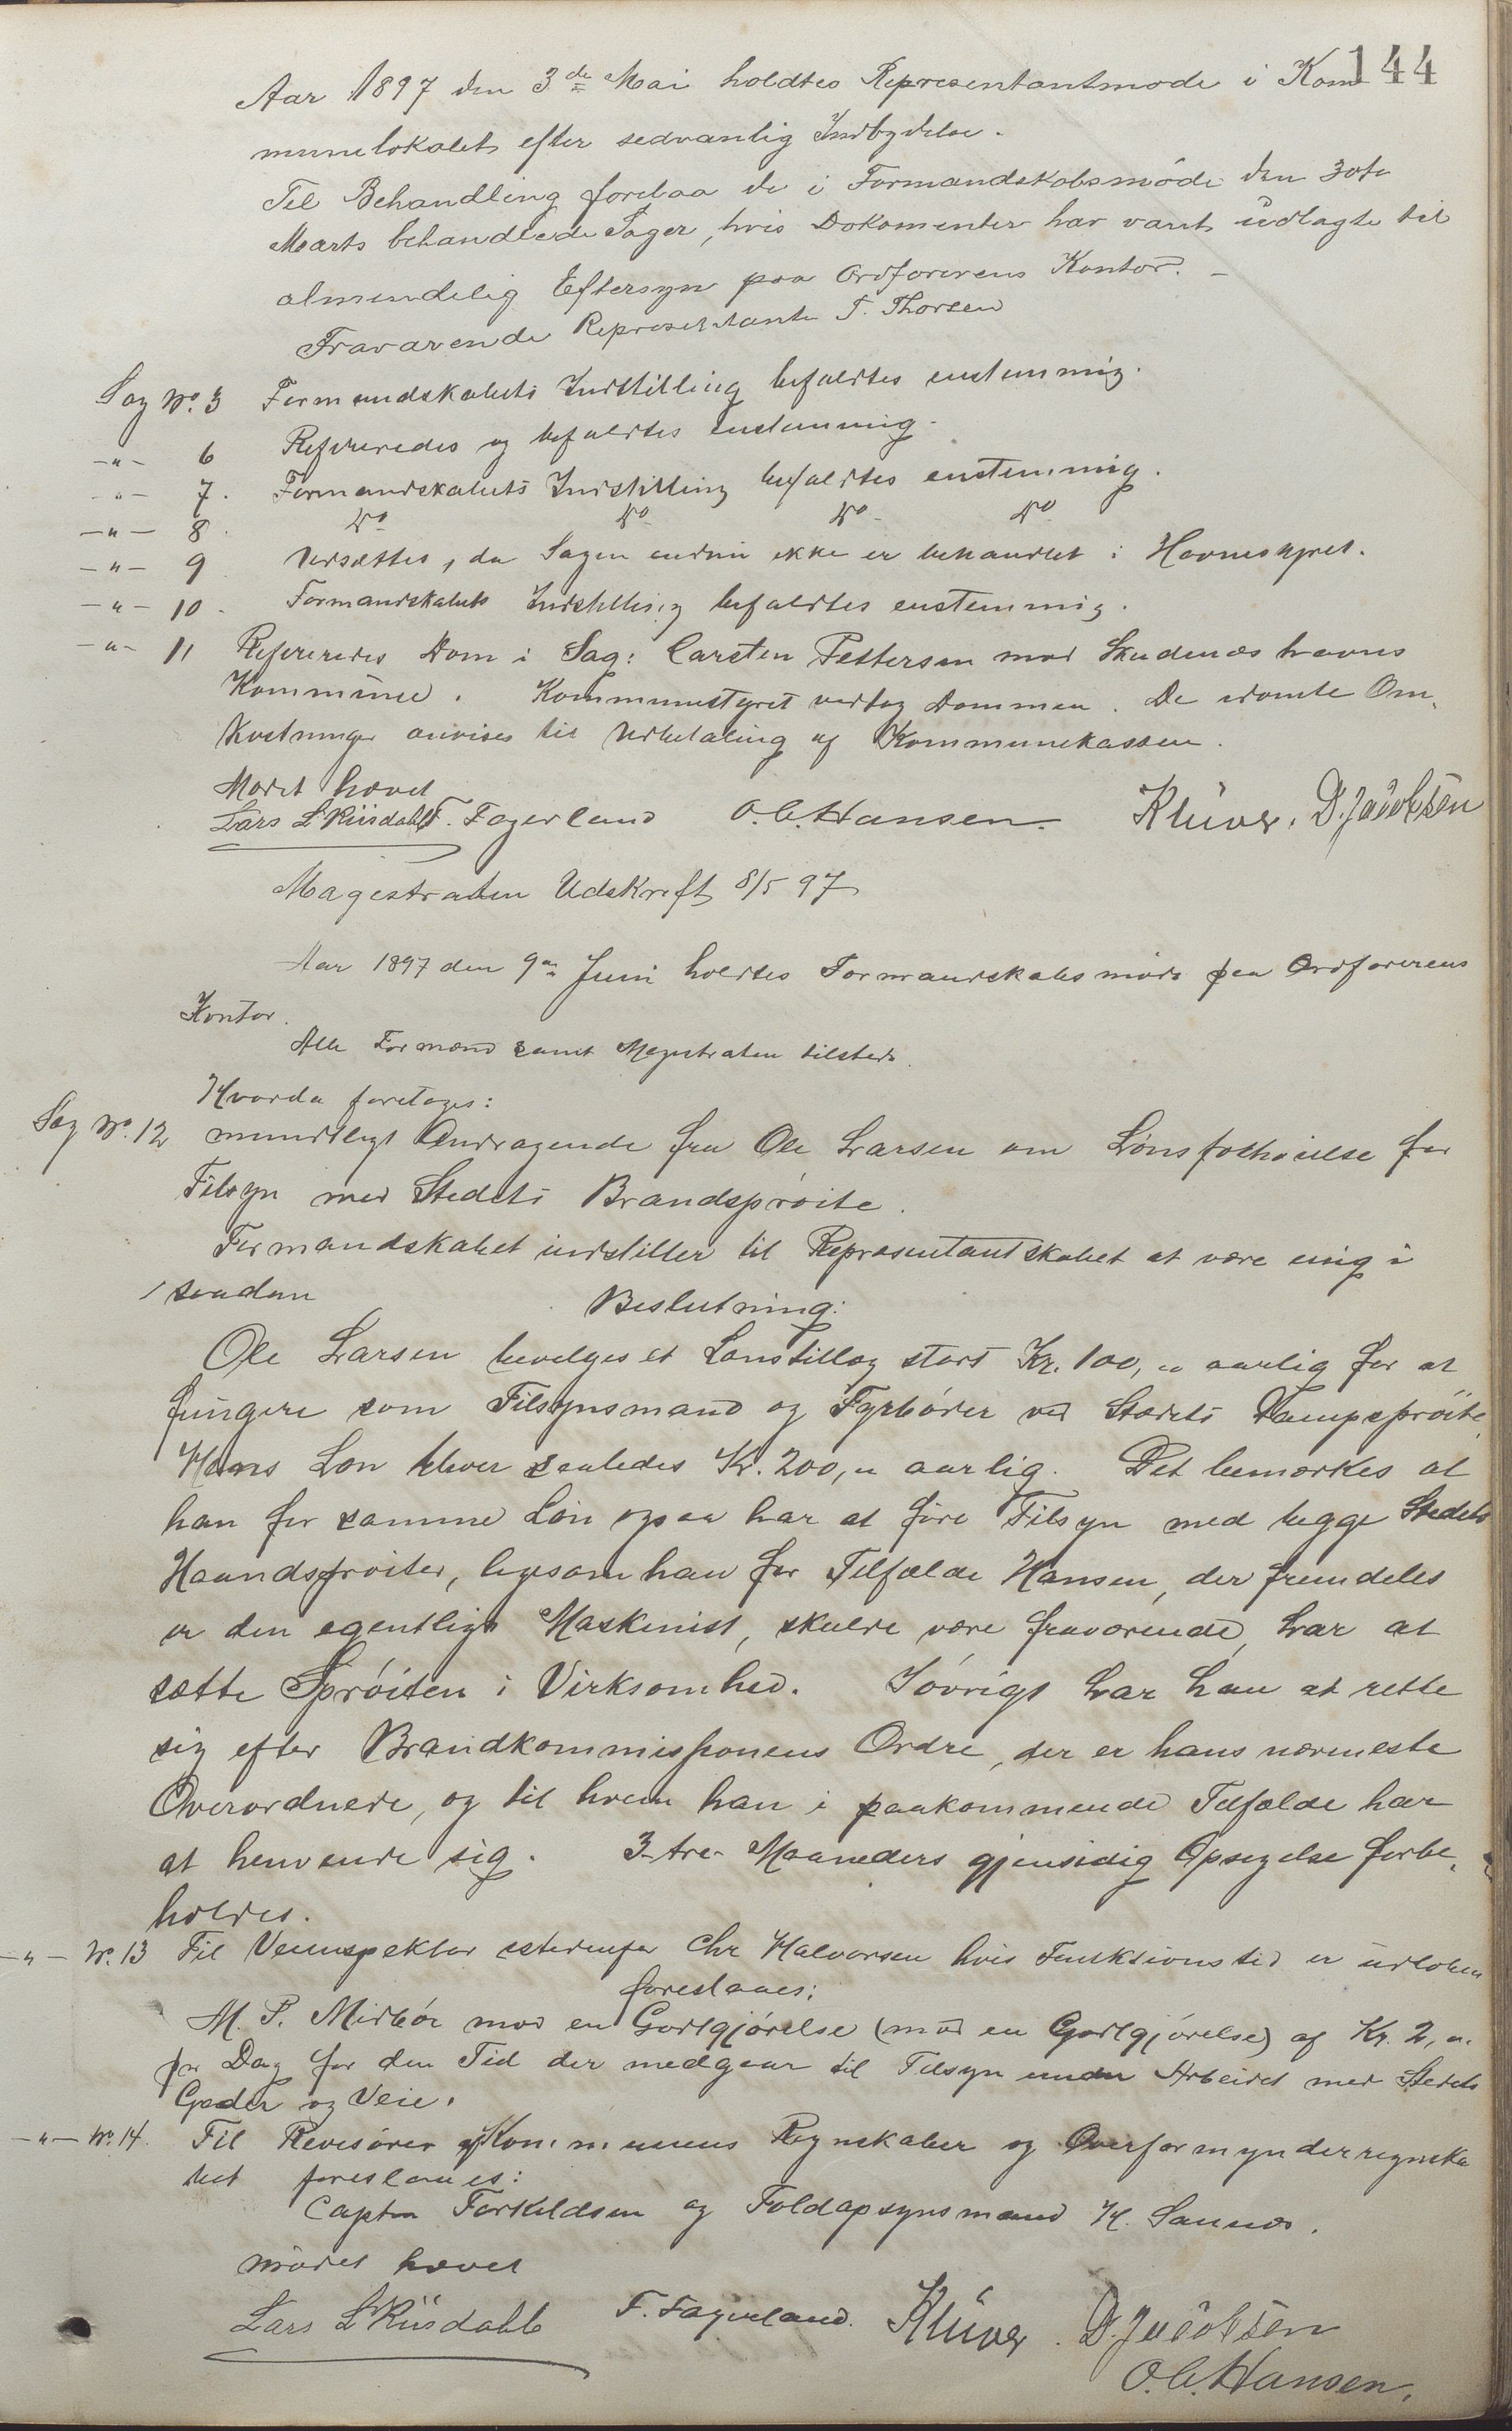 144
Aar 1897 den 3de Mai holdtes Representantmøde i Kom
munelokalet efter sedvanlig Indbydelse.
Til Behandling forelaa de i Formandskabsmøde den 30te
Marts behandlede Sager, hvis Dokomenter har været udlagte til
almindelig Eftersyn paa Ordførerens Kontor. –
Fraværende Representante T. Thorsen
Sag No. 3 Formandskabets Indstilling bifaldtes enstemmig.
–"– 6 Refereredes og bifaldtes enstemmig.
–"– 7. Formandskabets Indstilling bifaldtes enstemmig.
–"– 8. do do do do
–"– 9 Udsættes, da Sagen endnu ikke er behandlet i Havnestyret.
–"– 10. Formandskabets Indstilling bifaldtes enstemmig.
–"– 11 Refereredes Dom i Sag: Carsten Pettersen mod Skudenæshavns
Kommune. Kommunestyret vedtog Dommen. De idømte Om,
kostninger anvises til Udbetaling af Kommunekassen.
Mødet hævet
Lars L Riisdahl F. Fagerland O. C. Hansen. Klüver. D. Jacobsen
Magistraten Udskrift 8/5 97
Aar 1897 den 9de Juni holdtes Formandskabsmøde paa Ordførerens
Kontor.
Alle Formænd samt Magistraten tilstede.
Hvorda foretages:
Sag No. 12 mundtligt Andragende fra Ole Larsen om Lønsforhøielse for
Tilsyn med Stedets Brandsprøite.
Formandskabet indstiller til Representantskabet at være enig i
/ saadan Beslutning:
Ole Larsen bevilges et Lønstillæg stort Kr. 100,„ aarlig for at
fungere som Tilsynsmand og Fyrbøder ved Stedets Dampsprøite.
Hans Løn bliver saaledes Kr. 200,„ aarlig. Det bemærkes at
han for samme Løn ogsaa har at føre Tilsyn med begge Stedets
Haandsprøiter, ligesom han for Tilfælde Hansen, der fremdeles
er den egentlige Maskinist, skulde være fraværende, har at
sætte Sprøiten i Virksomhed. Iøvrigt har han at rette
sig efter Brandkommissionens Ordre, der er hans nærmeste
Overordnede, og til hvem han i paakommende Tilfælde har
at henvende sig. 3-tre- Maaneders gjensidig Opsigelse forbe,
holdes.
–"– No. 13 Til Veiinspektør istedenfor Chr Halvorsen hvis Funktionstid er udløben
foreslaaes:
M. P. Midbøe mod en Godtgjørelse (mod en Godtgjørelse) af Kr. 2,„.
pr Dag for den Tid der medgaar til Tilsyn under Arbeidet med Stedets
Gader og Veie.
–"– No. 14. Til Revisorer af Kommunens Regnskaber og Overformynderregnska
bet foreslaaes:
Captn Torkildsen og Toldopsynsmand H. Sannes.
mødet hævet
Lars L Riisdahl F. Fagerland. Klüver. D. Jacobsen
O. C. Hansen.